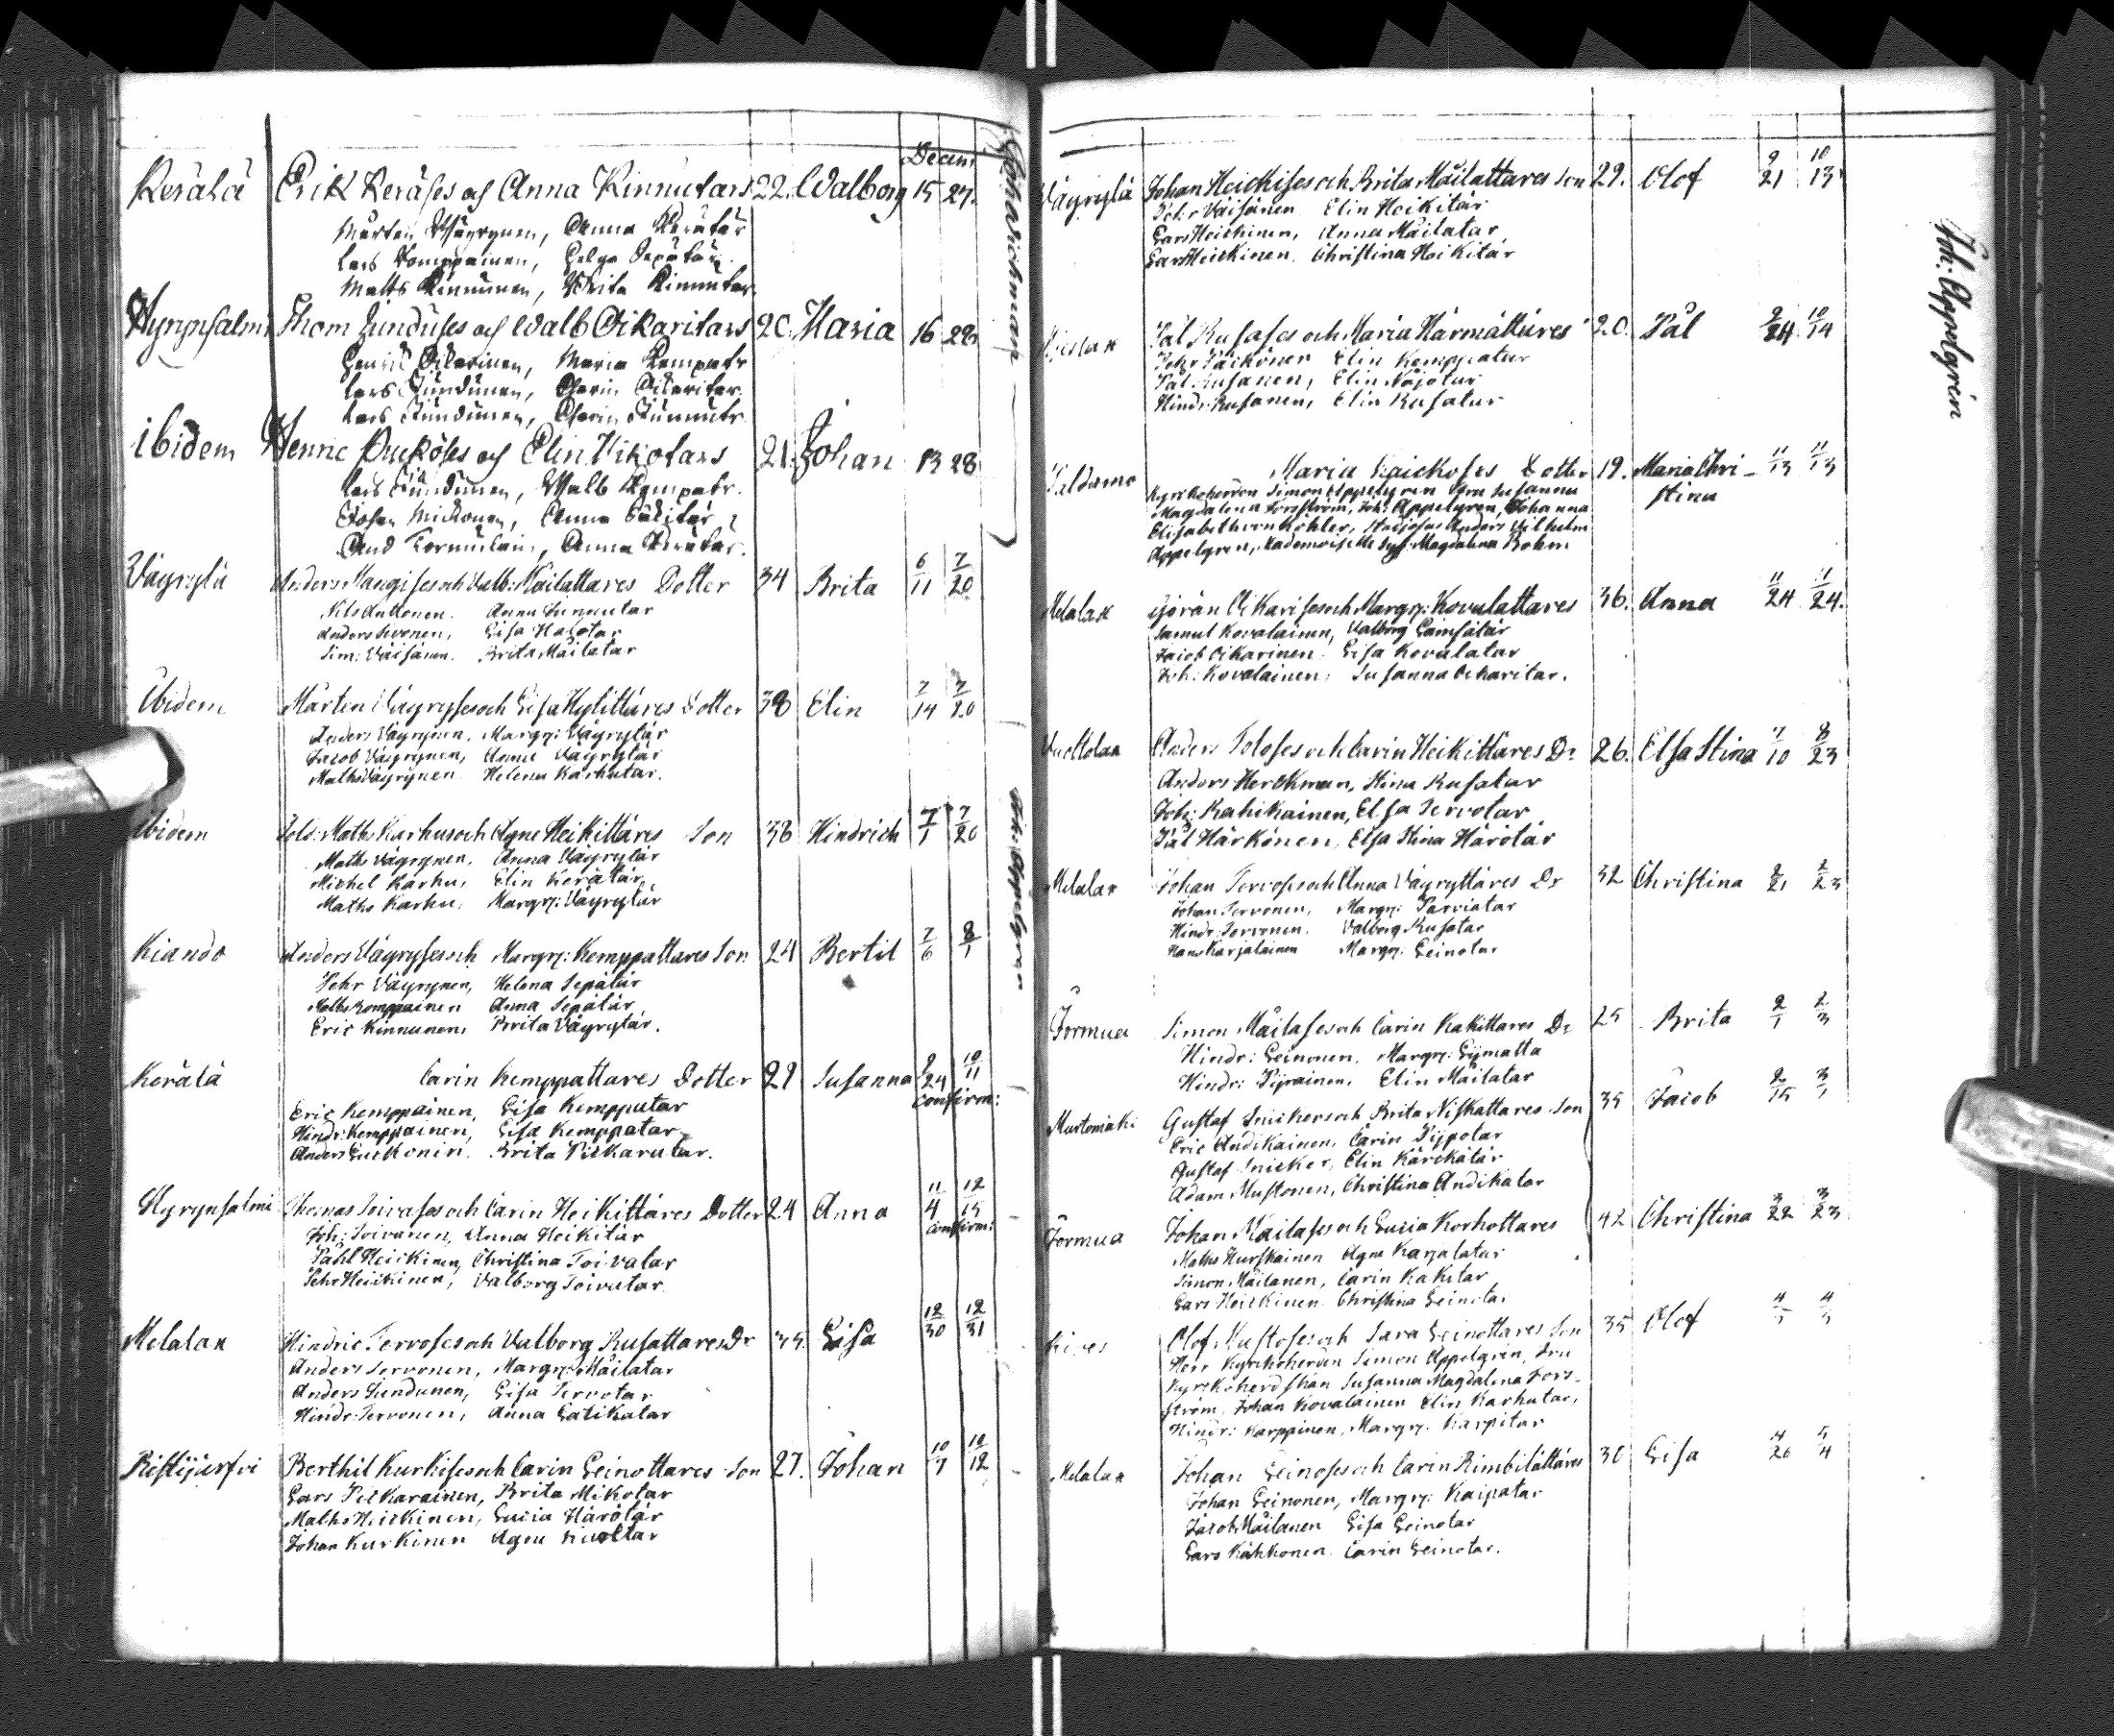 Decem.
Kerälä Erik Keräses och Anna Kinnutars 22. Walborg 15 27.
Mårten Wäyrynen, Anna Kerätär
Lars Komppainen, Helga Sepätär
Matts Kinnunen, Brita Kinnutar
Hyrynsalmi Thom Junduses och Walb Oikaritars 20. Maria 16 28
Henric Oikarinen, Maria Kempatr
Lars Jundunen, Carin Oikaritar
Lars Jundunen, Carin
ibidem Henric och Elin Mikotars 21. Johan 13 28
Lars Jundunen, Walb Kempatr.
Johan Mickonen, Anna
And Tormulain, Anna Kerätär.
Väyrylä Anders Maugises och Valb: Mäilattares Dotter 34 Brita 6/11 7/20
Nils Anttonen. Anna Junnutar
Anders Sivonen, Lisa Halotar
Sim: Väisänen. Brita Mäilatar
Ibidem Mårten Väyryses och Lisa Hylittäres Dotter 38 Elin 7/14 7/20
Anders Väyrynen. Margr: Väyrytär
Jacob Väyrynen, Anna Väyrytär
Maths Väyrynen Helena Karhutar.
Ibidem Sold: Maths Karhus och Agne Heikittäres Son 38 Hindrich 7/1 7/20
Maths Väyrynen. Anna Väyrytär
Michel Karhu, Elin Kerätär
Maths Karhu, Margr: Väyrytär
Kiando Anders Väyryses och Margr: Kemppattares Son 24 Bertil 7/6 8/1
Pehr Väyrynen, Helena Sepätär
Maths Komppainen Anna Sepätär
Eric Kinnunen, Brita Väyrytär.
Kerälä Carin Kemppattares Dotter 29 Susanna 9/24 10/11
confirm:
Eric Kemppainen, Lisa Kempputar
Hindr: Kemppainen, Lisa Kemppatar
Anders Luckonin. Brita Pickarutar.
Hyrynsalmi Thomas Toivases och Carin Heikittäres Dotter 24 Anna 11/4 12/15
confirm:
Joh: Toivanen, Anna Heikitär
Påhl Heickinen, Christina Toivatar
Pehr Heickinen, Valborg Toivutar.
Melalax Hindric Tervoses och Valborg Rusattares Dr 35. Lisa 12/30 12/31
Anders Tervonen, Margr: Mäilatar
Anders Jundunen, Lisa Tervotar
Hindr: Tervonen, Anna Latikatar
Ristijärfvi Berthil Kurkises och Carin Leinottares Son 27. Johan 10/7 10/12
Lars Pickarainen, Brita Mikotar
Maths Heickinen, Lucia Härötär
Johan Kurkinen Agne
Joh: Appelgren
Väyrylä Johan Heickises och Brita Mäilattares Son 29. Olof 9/21 10/13
Pehr Väisänen Elin Heikitär
Lars Heickinen, Anna Mäilatar
Lars Heickinen. Christina Heikitär
Pål Rusases och Maria Härmättäres 20. Pål 9/24 10/14
Pehr Päikönen Elin Kemppatar
Pål Rusanen, Elin Näjotar
Hindr: Rusanen, Elin Rusatar
Paldamo Maria Laickoses Dotter 19. Maria Chri- 11/13 11/13
stina
Kyrckoherden Simon Appelgren Fru Susanna
Magdalena Forsström, Joh: Appelgren, Johanna
Elisabeth von Köhler, Studiosus Anders Vilhelm
Appelgren, Mademoiselle Magdalena Bohm
Melalax Göran Oikarises och Margr: Kovalattares 36. Anna 11/24 11/24.
Samul Kovalainen, Valborg Lämsätär
Jacob Oikarinen. Lisa Kovalatar
Joh: Kovalainen, Susanna Oikaritar.
Vuottolax Anders Toloses och Carin Heikittäres Dr. 26. Elsa Stina 7/10 8/23
Anders Herckman, Stina Rusatar
Joh: Kahikainen, Elsa Tervotar
Pål Härkönen, Elsa Stina Härötär
Melalax Johan Tervoses och Anna Väyryttäres Dr 32 Christina 2/21 2/23
Johan Tervonen, Margr: Parviatar
Hindr: Tervonen. Valborg Rusatar
Hans Karjalainen Margr: Leinotar
Jormua Simon Mäilases och Carin Kakittares Dr 25 Brita 2/1 2/3
Hindr: Leinonen. Margr: Lijmatta
Hindr: Pijrainen. Elin Mäilatar
Mustomäki Gustaf Snickers och Brita Niskattares Son 35 Jacob 2/15 3/1
Eric Andikainen, Carin Pijpotar
Gustaf Snicker, Elin Kärckätär
Adam Mustonen, Christina Andikatar
Jormua Johan Mäilases och Lucia Korhottares 42 Christina 3/22 3/23
Maths Hurskainen Agne Karjalatar
Simon Mäilanen, Carin Kakitar
Lars Heickinen. Christina Leinotar
Olof Mustoses och Sara Leinottares Son 35 Olof
Herr Kyrckoherden Simon Appelgren, Fru
Kyrckoherdskan Susanna Magdalena Fors-
ström. Johan Kovalainen Elin Karhutar,
Hindr: Karppainen, Margr: Karpitar
Melalax Johan Leinoses och Carin Rimbilättäres 30 Lisa 4/26 5/4
Johan Leinonen, Margr: Kaipatar
Jacob Mäilanen Lisa Leinotar
Lars Kähkönen. Carin Leinotar.
Joh: Appelgren